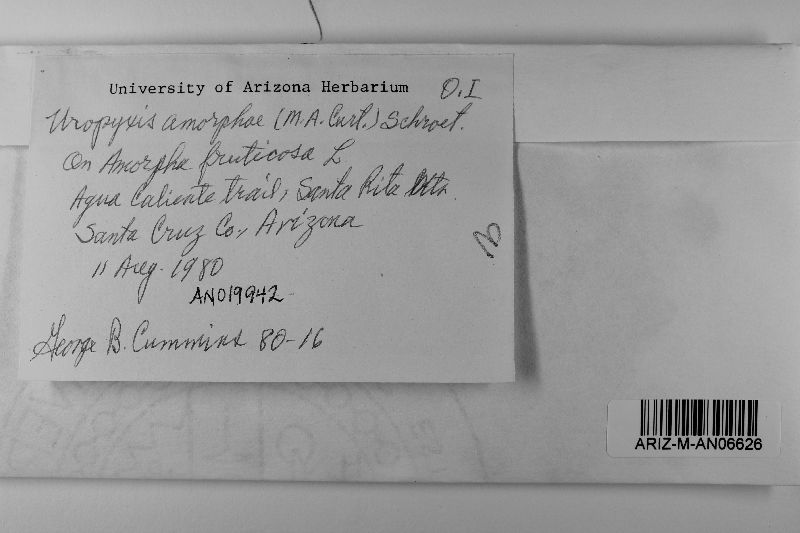 University of Arizona Herbarium O,I
Uropyxis amorphae (M.A. Curt.) Schroet.
On Amorpha fruticosa L
Agua Caliente trail, Santa Rita Mts.
Santa Cruz Co., Arizona
11 Aug. 1980
AN019942
George B. Cummins 80-16
ARIZ-M-AN06626